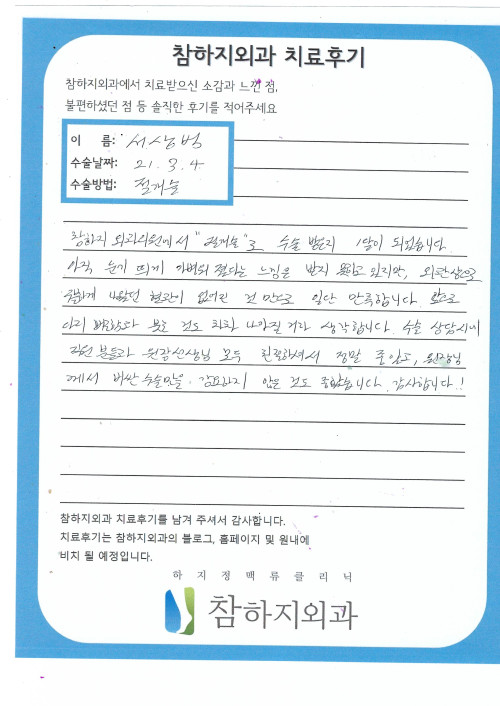 참하지외과 치료후기
참하지외과에서 치료받으신 소감과 느낀 점,
불편하셨던 점 등 솔직한 후기를 적어주세요
이 름: 서상범
수술날짜: 21. 3. 4
수술방법: 절개술
참하지 외과의원에서 "절개술"로 수술 받은지 1달이 되었습니다.
아직 눈에 띄게 가벼워 졌다는 느낌은 받지 못하고 있지만, 외관상으로
흉하게 나왔던 혈관이 없어진 것 만으로 일단 만족합니다. 앞으로
다리 붓는 것도 차차 나아질 거라 생각합니다. 수술 상담시에
직원 분들과 원장선생님 모두 친절하셔서 정말 좋았고, 원장님
께서 비싼 수술만을 강요하지 않은 것도 좋았습니다. 감사합니다!
참하지외과 치료후기를 남겨 주셔서 감사합니다.
치료후기는 참하지외과의 블로그, 홈페이지 및 원내에
비치 될 예정입니다.
하지정맥류클리닉
참하지외과